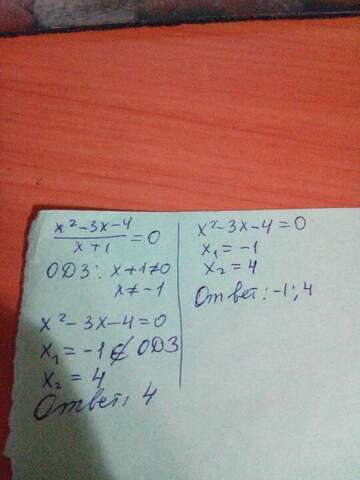 x²-3x-4
x+1 =0
ОДЗ: x+1≠0
x≠-1
x²-3x-4=0
x₁=-1∉ОДЗ
x₂=4
Ответ: 4
x²-3x-4=0
x₁=-1
x₂=4
Ответ: -1; 4